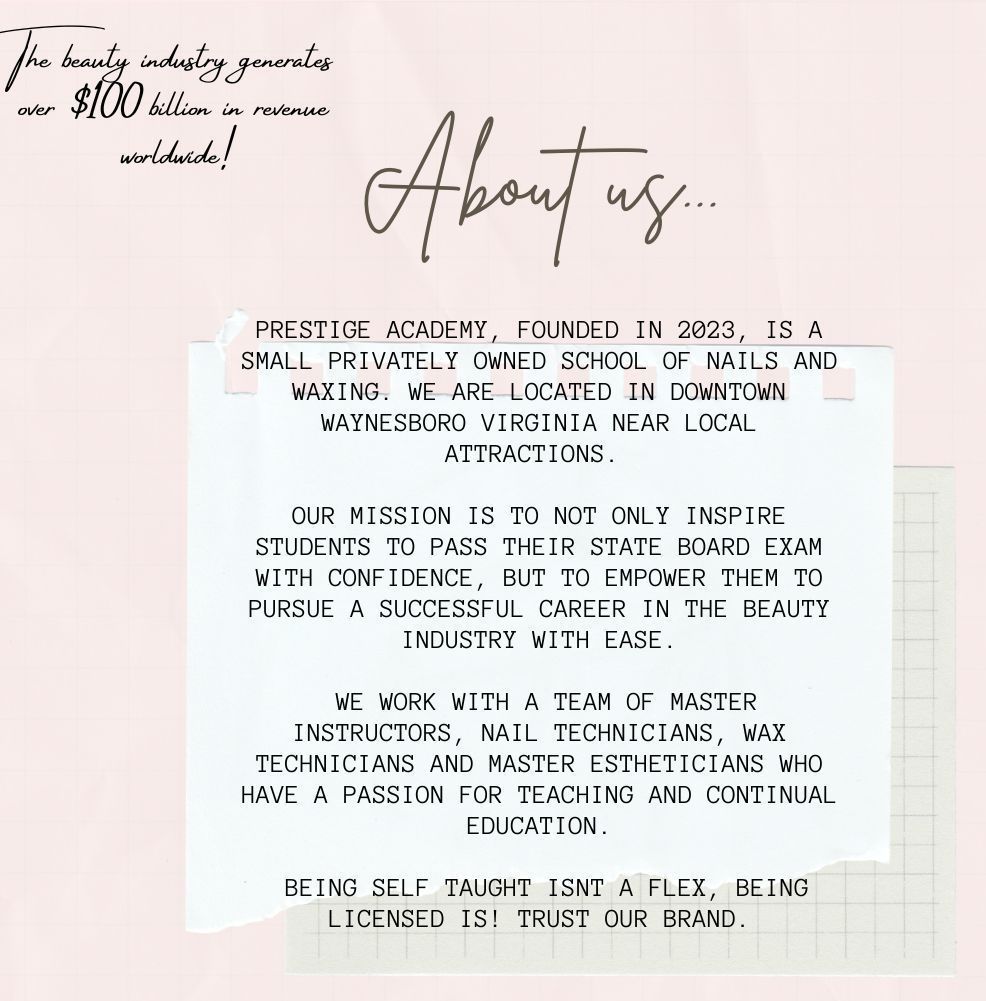 The beauty industry generates
over $100 billion in revenue
worldwide!
About us...
PRESTIGE ACADEMY, FOUNDED IN 2023, IS A
SMALL PRIVATELY OWNED SCHOOL OF NAILS AND
WAXING. WE ARE LOCATED IN DOWNTOWN
WAYNESBORO VIRGINIA NEAR LOCAL
ATTRACTIONS.
OUR MISSION IS TO NOT ONLY INSPIRE
STUDENTS TO PASS THEIR STATE BOARD EXAM
WITH CONFIDENCE, BUT TO EMPOWER THEM TO
PURSUE A SUCCESSFUL CAREER IN THE BEAUTY
INDUSTRY WITH EASE.
WE WORK WITH A TEAM OF MASTER
INSTRUCTORS, NAIL TECHNICIANS, WAX
TECHNICIANS AND MASTER ESTHETICIANS WHO
HAVE A PASSION FOR TEACHING AND CONTINUAL
EDUCATION.
BEING SELF TAUGHT ISNT A FLEX, BEING
LICENSED IS! TRUST OUR BRAND.